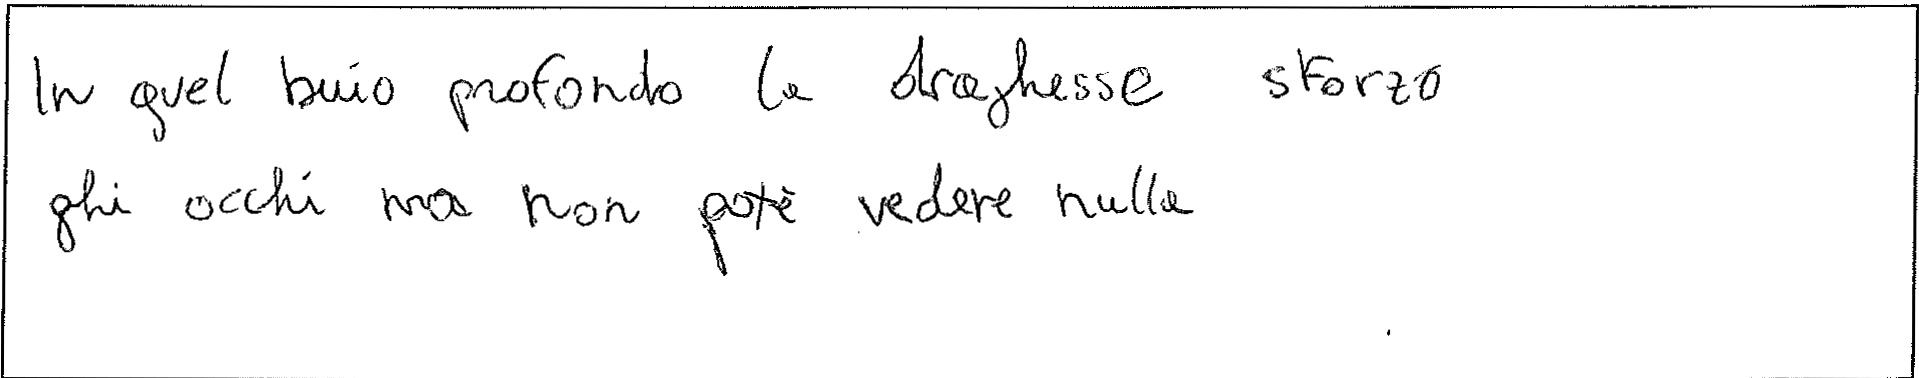 In quel buio profondo la draghessa sforzo
ghi occhi ma non potè vedere nulla